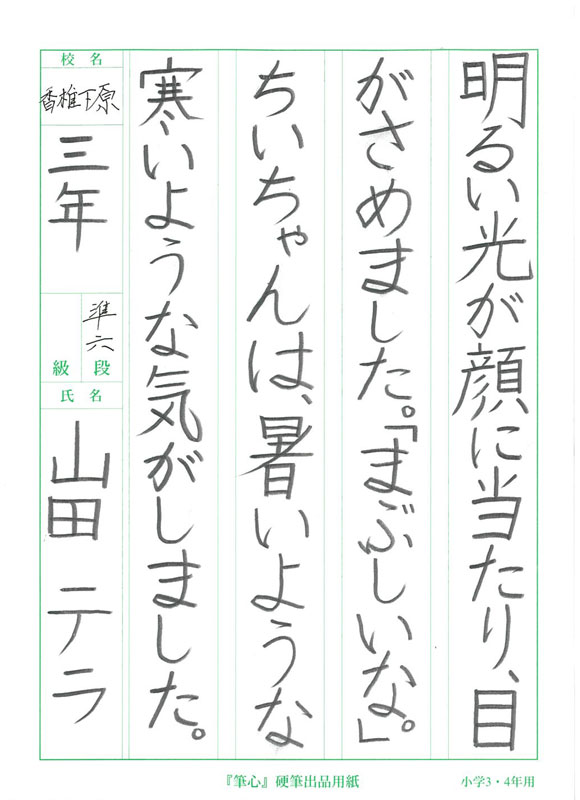 明るい光が顔に当たり、目
がさめました。「まぶしいな。」
ちいちゃんは、暑いような
寒いような気がしました。
校名
香椎下原
三年
準六
段級
氏名
山田テラ
『筆心』硬筆出品用紙
小学3・4年用